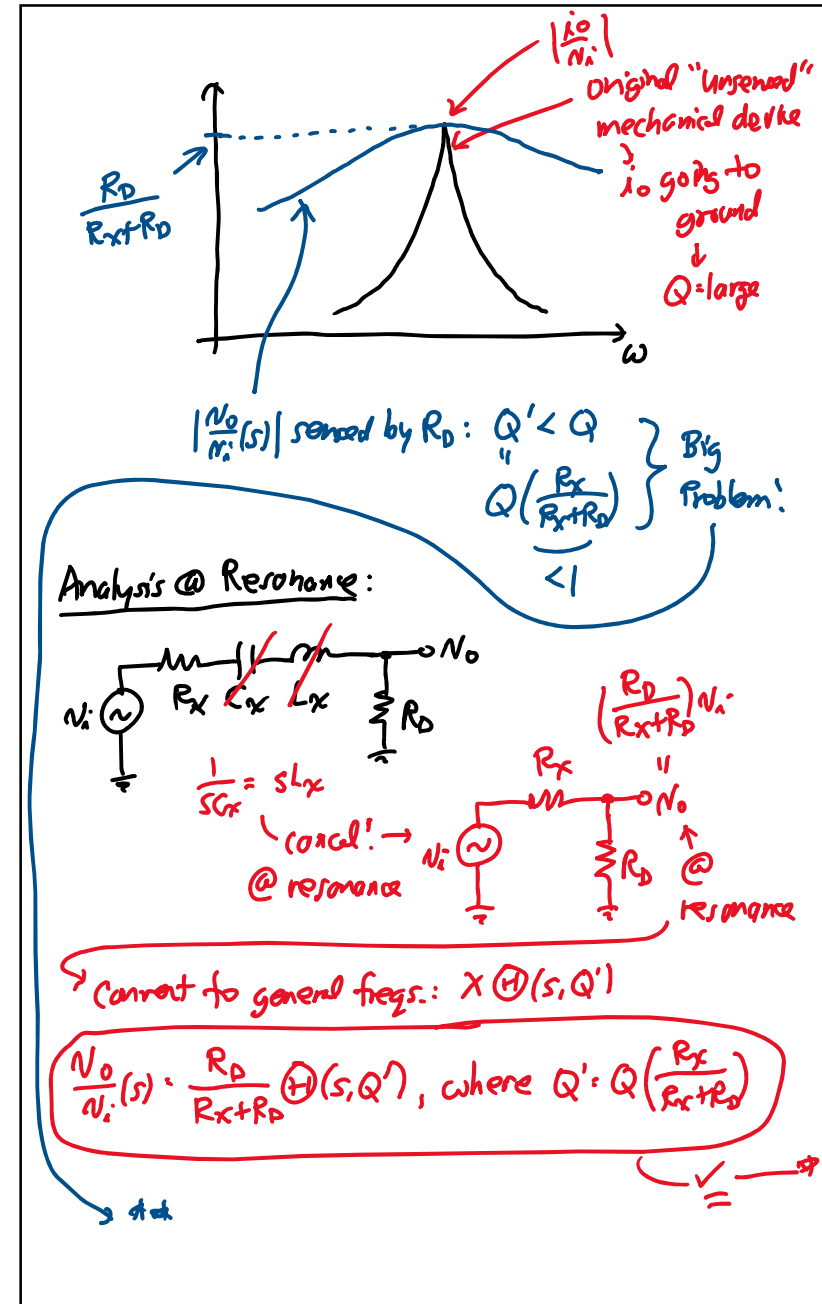 |io/vi|
original "unsensed"
mechanical device
io going to
ground
↓
Q=large
RD/(Rx+RD)
ω
|vo/vi(s)| sensed by RD: Q' < Q
"
Q(Rx/(Rx+RD))
<1
Big
Problem!
Analysis @ Resonance:
vi Rx Cx Lx RD vo
1/(sCx) = sLx
cancel! →
@ resonance
(RD/(Rx+RD))vi
"
vi Rx RD vo
↑
@
resonance
Convert to general freqs.: × Θ(s,Q')
vo/vi(s) = RD/(Rx+RD) Θ(s,Q'), where Q' = Q(Rx/(Rx+RD))
✓
**